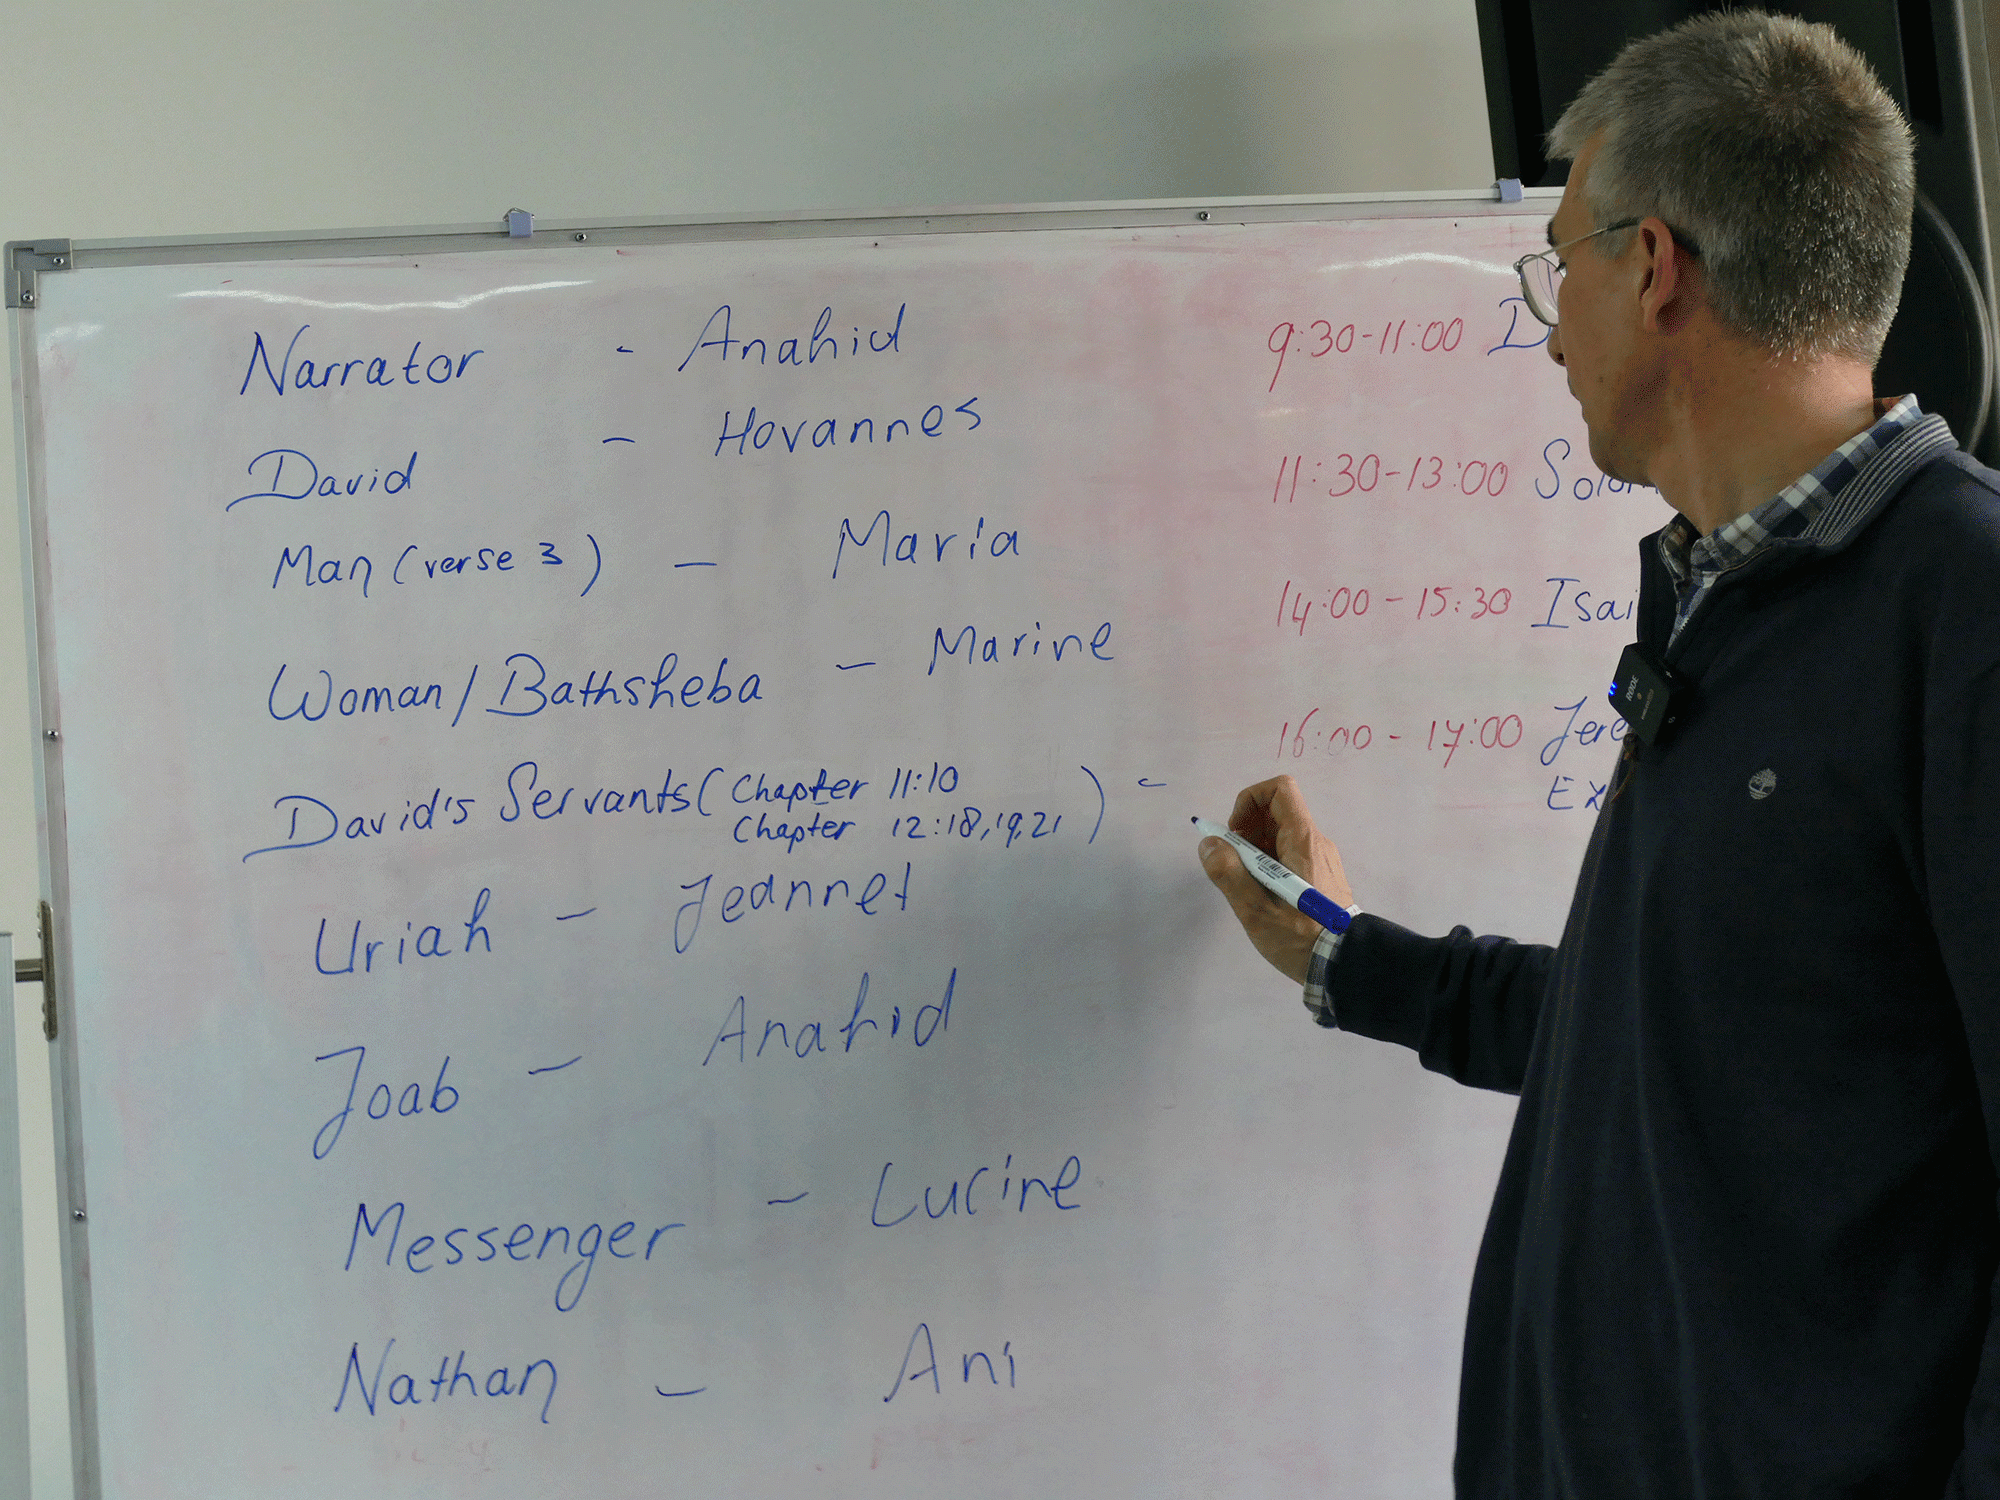 Narrator - Anahid
David - Hovannes
Man (verse 3) - Maria
Woman/Bathsheba - Marine
David's Servants (Chapter 11:10
Chapter 12:18,19,21) -
Uriah - Jeannet
Joab - Anahid
Messenger - Lucine
Nathan - Ani
9:30-11:00 D
11:30-13:00 Solom
14:00-15:30 Isai
16:00-17:00 Jere
Ez
RØDE